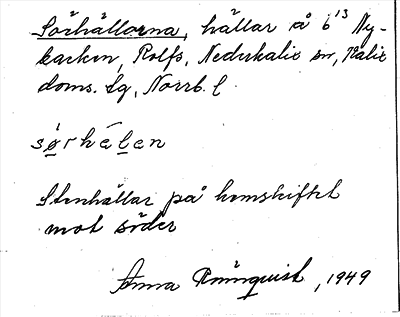 Sörhällorna, hällar å 6¹³ Ny-
backen, Rolfs, Nederkalix sn, Kalix
doms. lg, Norrb. l
sørhelen
Stenhällar på hemskiftet
mot söder
Anna Rönnquist, 1949